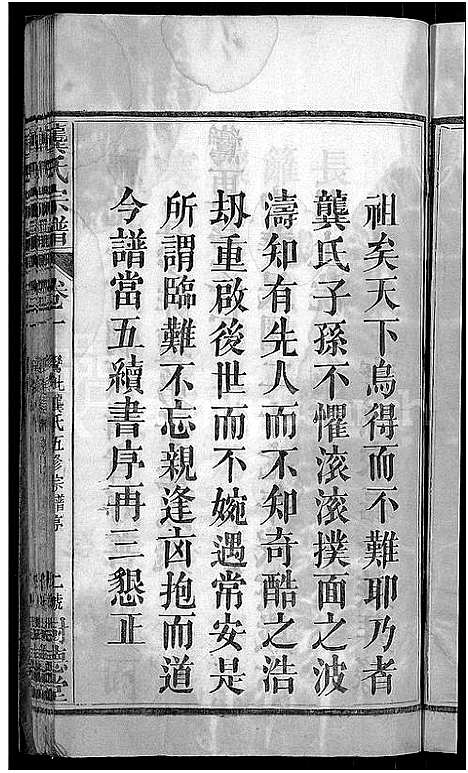 祖矣天下烏得而不難耶乃者
龔氏子孫不懼滚滚撲面之波
濤知有先人而不知奇酷之浩
刼重啟後世而不婉遇常安是
所謂臨難不忘親逢凶抱而道
今譜當五續書序再三懇止
龔氏宗譜
卷一
龔氏五修宗譜序